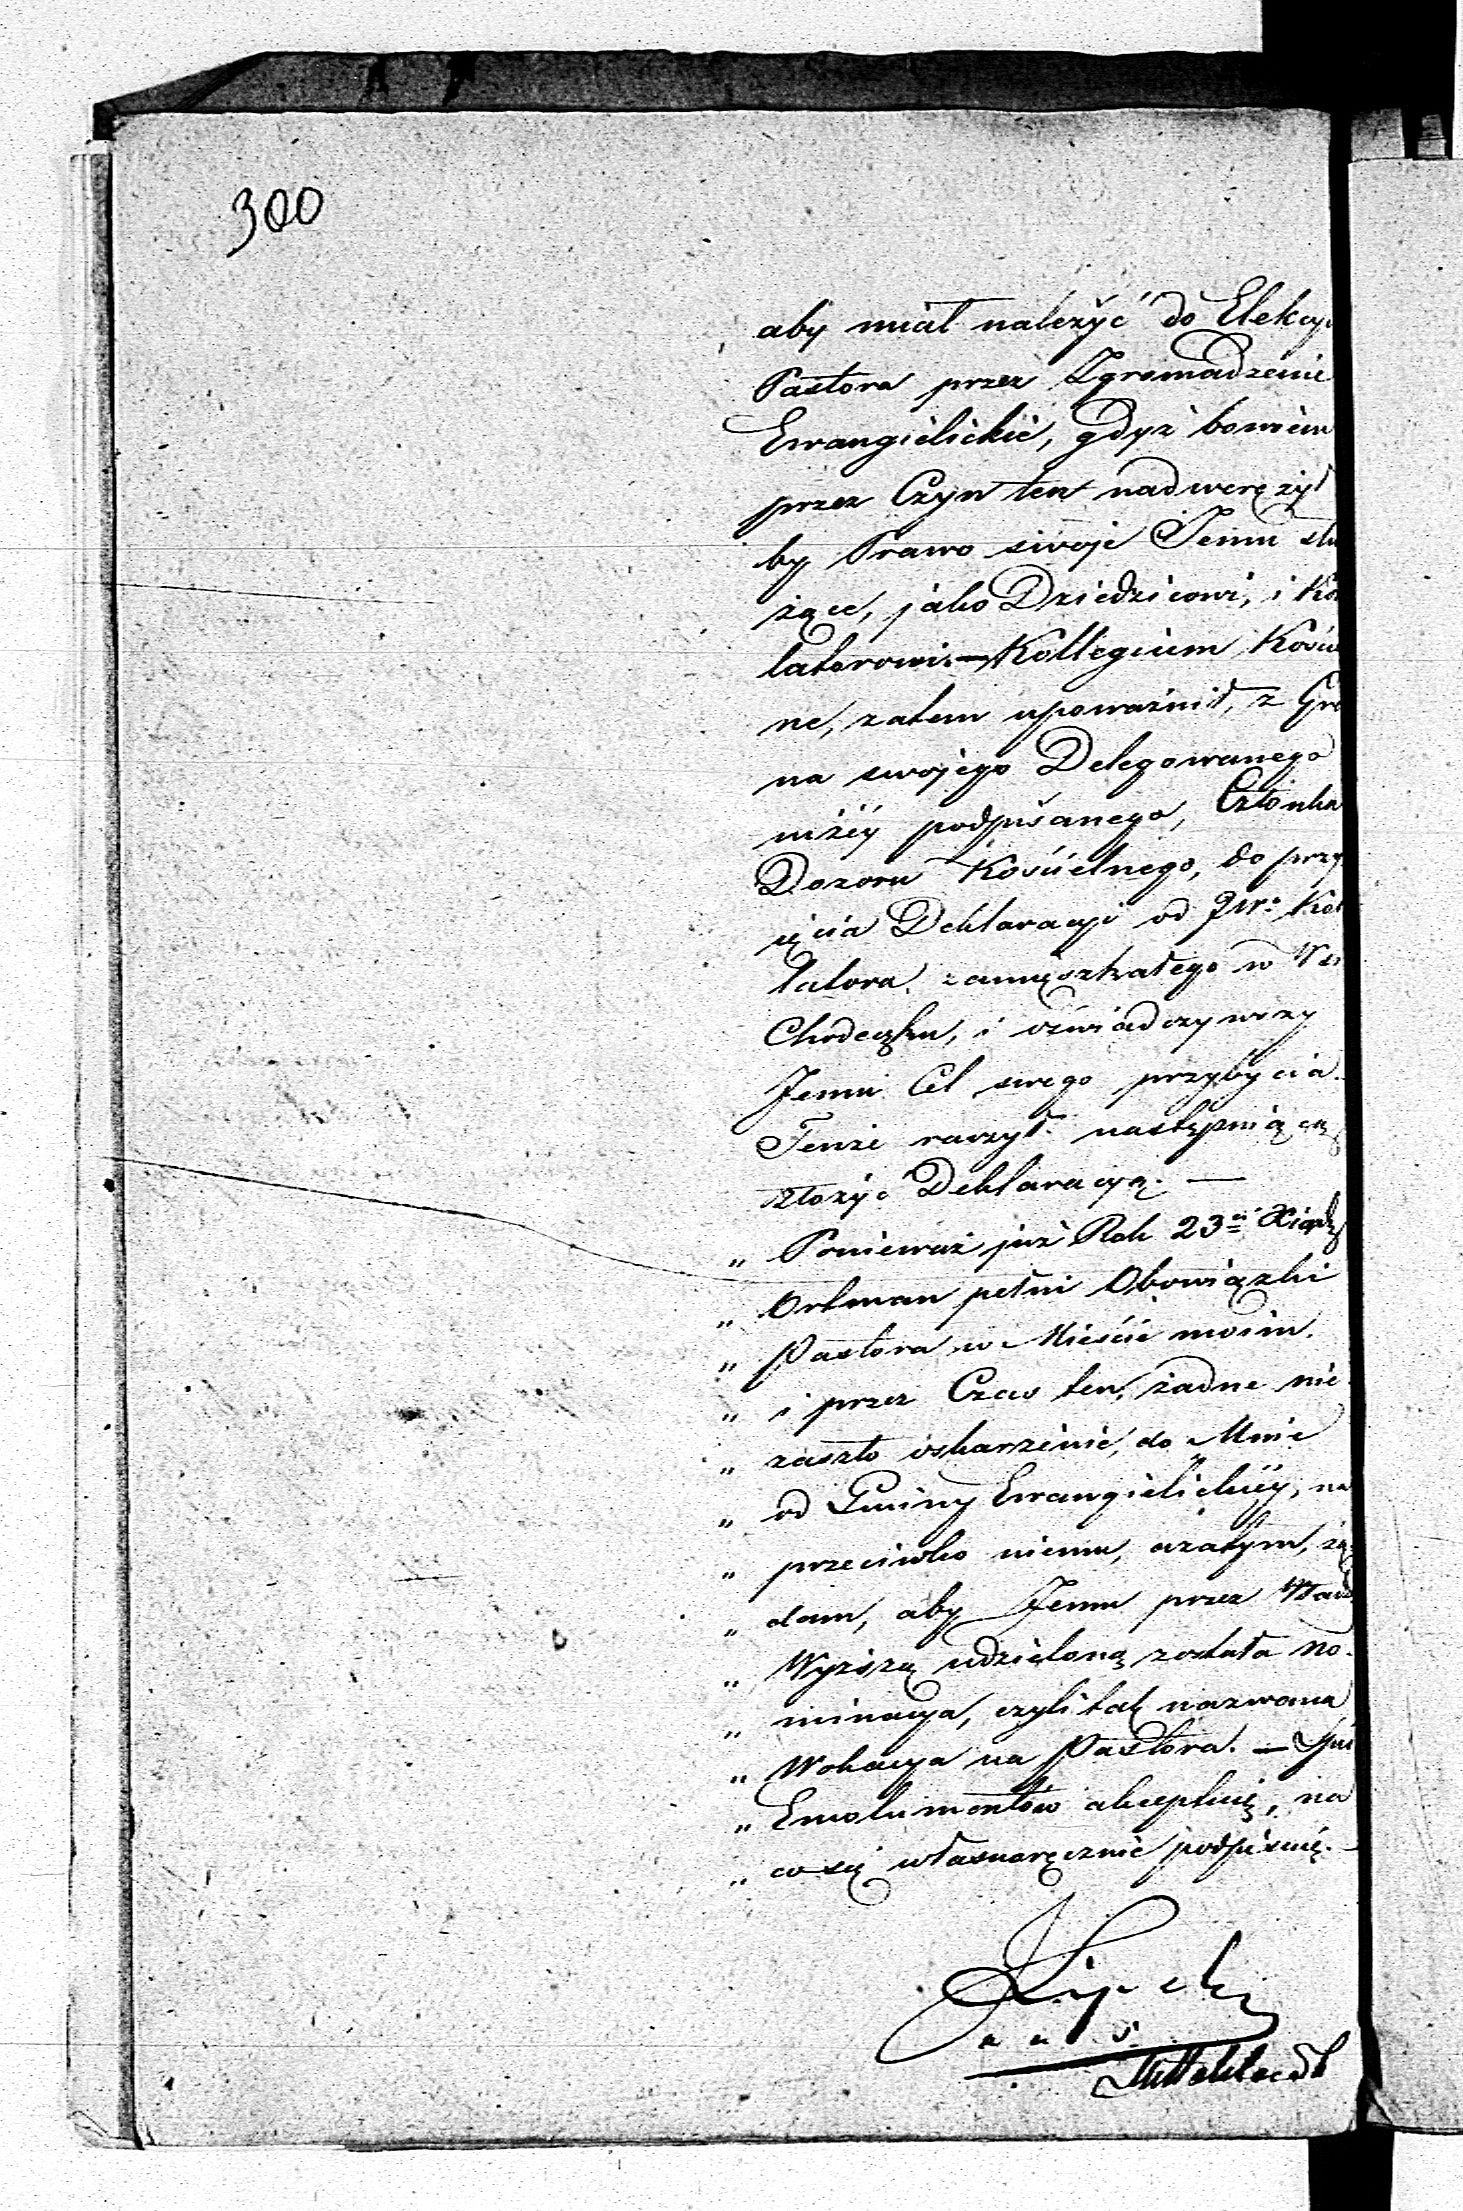 300
aby miał należyć do Elekcyi
Pastora przez Zgromadzenie
Ewangielickie, gdyż bowiem
przez Czyn ten nadwerężył
by Prawo swoje Jemu słu
żące, jako Dziedzicowi, i Ko
latorowi. — Kollegium Kościel
ne, zatem upoważnił, z Gro
na swojego Delegowanego
niżéy podpisanego, Członka
Dozoru Kościelnego, do przy
ięcia Deklaracyi od JW. Kol
latora, zamięszkałego w Wsi
Chodeczku, i oświadczywszy
Jemu Cel swego przybycia.
Tenże raczył następuiącą
złożyć Deklaracyą. —
„ Ponieważ już Rok 23ci Xiądz
„ Ortman pełni Obowiązki
„ Pastora w Mieście moim.
„ i przez Czas ten, żadne nie
„ zaszło oskarzenie, do Mnie
„ od Gminy Ewangielickiéy, na
„ przeciwko niemu, azatym, żą
„ dam, aby Jemu przez Władzę
„ Wyższą udzieloną została no-
„ minacya, czyli tak nazwana
„ Wokacya na Pastora. —
„ Emolumentów akceptuię, na
„ co się własnoręcznie podpisuię. —
Lipski